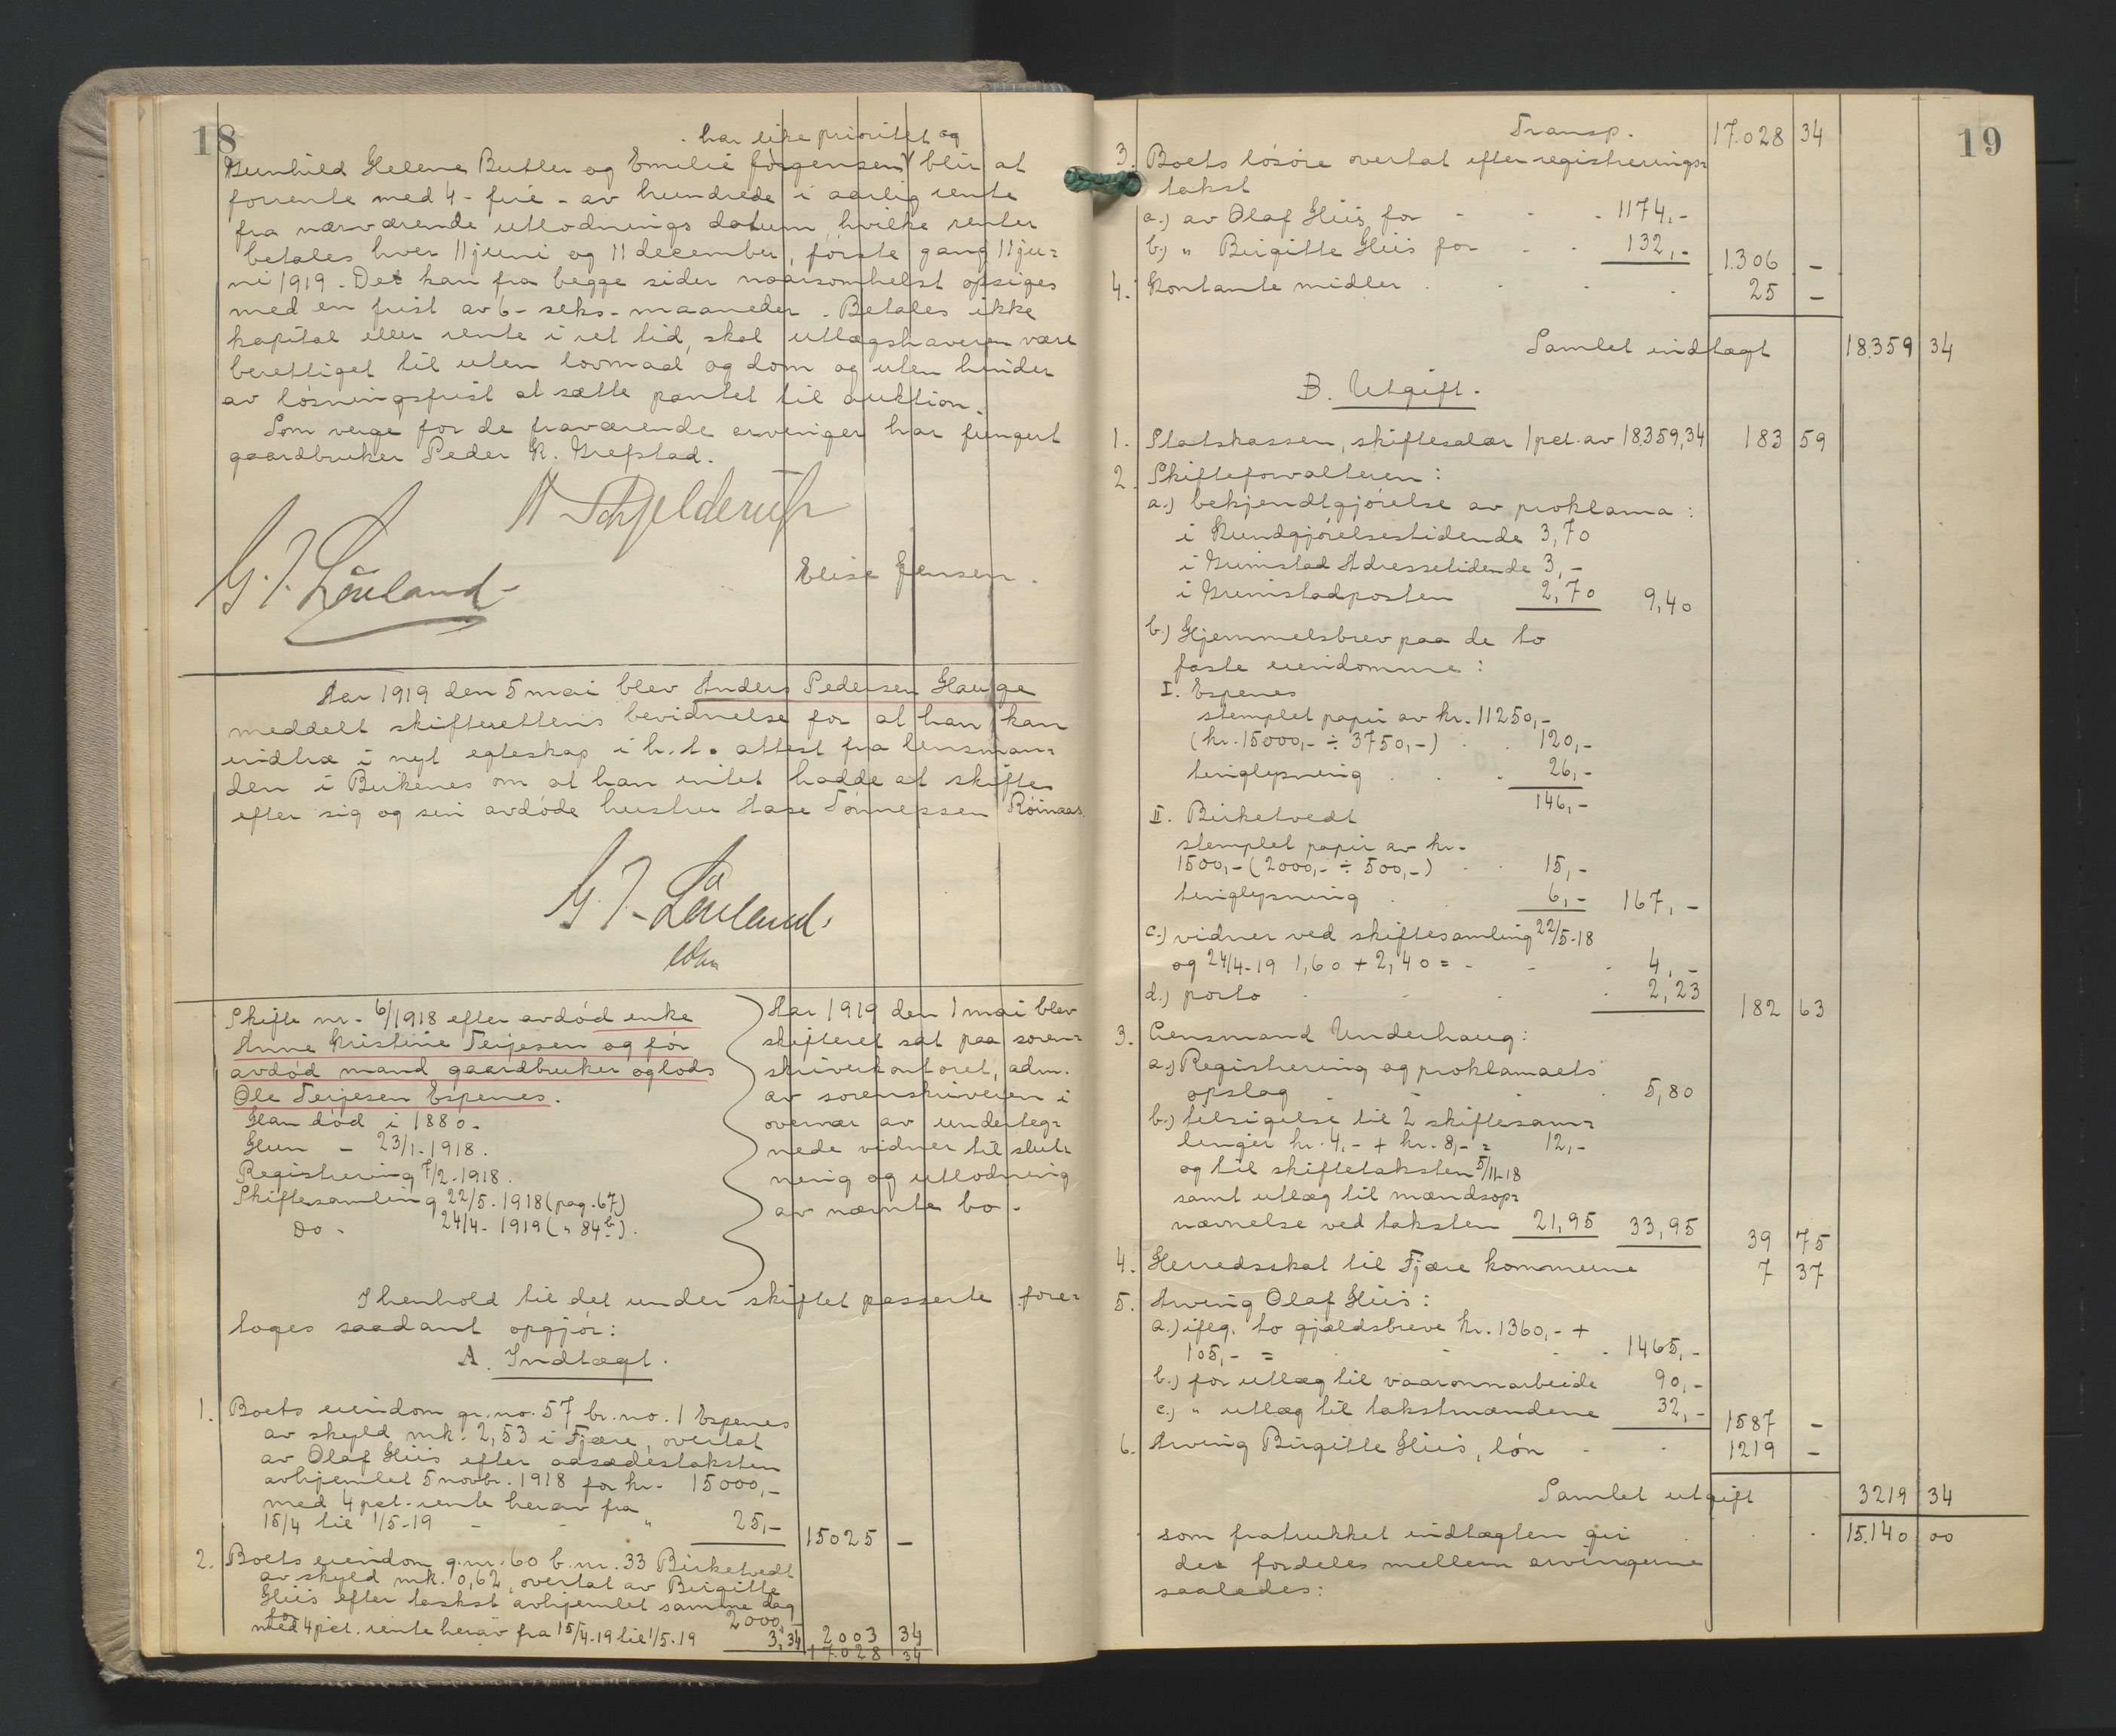 18
har like prioritet og
Gunhild Helene Butler og Emilie Jørgensen blir at
forrente med 4 - fire - av hundrede i aarlig rente
fra nærværende utlodnings datum, hvilke renter
betales hver 11 juni og 11 december, første gang 11 ju=
ni 1919. Det kan fra begge sider naarsomhelst opsiges
med en frist av 6 - seks - maaneder. Betales ikke
kapital eller rente i ret tid, skal utlægshaveren være
berettiget til uten lovmaal og dom og uten hinder
av løsningsfrist at sætte pantet til auktion.
Som verge for de fraværende arvinger har fungert
gaardbruker Peder K. Grefstad.
H Schjelderup
G. T. Løuland
Elise Jensen.
Aar 1919 den 5 mai blev Anders Pedersen Hauge
meddelt skifterettens bevidnelse for at han kan
indtræ i nyt egteskap i h. t. attest fra lensman=
den i Birkenes om at han intet hadde at skifte
efter sig og sin avdøde hustru Aase Tønnessen Røinaas.
G. T. Løuland
Skifte nr. 6/1918 efter avdød enke
Anne Kristine Terjesen og før
avdød mand gaardbruker og lods
Ole Terjesen Espenes.
Han død i 1880.
Hun - 23/1-1918.
Registrering 7/2-1918.
Skiftesamling 22/5-1918 (pag. 67)
Do - 24/4-1919 (" 84b).
Aar 1919 den 1 mai blev
skifteret sat paa soren=
skriverkontoret, adm.
av sorenskriveren i
overvær av underteg=
nede vidner til slut=
ning og utlodning
av nævnte bo.
I henhold til det under skiftet passerte fore=
toges saadant opgjør:
A. Indtægt.
1. Boets eiendom gr. no. 57 br. no. 1 Espenes
av skyld mk. 2,53 i Fjære, overtat
av Olaf Hiis efter aasædestaksten
avhjemlet 5 novbr. 1918 for kr. 15000,-
med 4 pct. rente herav fra
15/4 til 1/5-19 - - " 25,- 15025 -
2. Boets eiendom g. nr. 60 b. nr. 33 Birketvedt
av skyld mk. 0,62, overtat av Birgitte
Hiis efter takst avhjemlet samme dag
for 2000,-
med 4 pct. rente herav fra 15/4-19 til 1/5-19 3,34 2003 34
17.028 34
19
Transp. 17.028 34
3. Boets løsøre overtat efter registrerings=
takst
a.) av Olaf Hiis for - - - 1174,-
b.) " Birgitte Hiis for - - 132,- 1.306 -
4. Kontante midler . . . . 25 -
Samlet indtægt 18.359 34
B. Utgift.
1. Statskassen, skiftesalær 1 pct. av 18.359,34 183 59
2. Skifteforvalteren:
a.) bekjendtgjørelse av proklama:
i Kundgjørelsestidende 3,70
i Grimstad Adressetidende 3,-
i Grimstadposten 2,70 9,40
b.) Hjemmelsbrev paa de to
faste eiendomme:
I. Espenes
stemplet papir av kr. 11250,-
(kr. 15000,- ÷ 3750,-) . . 120,-
tinglysning . . . 26,-
146,-
II. Birketvedt
stemplet papir av kr.
1500,- (2000,- ÷ 500,-) . . 15,-
tinglysning . . 6,- 167,-
c.) vidner ved skiftesamling 22/5-18
og 24/4-19 1,60 + 2,40 = - - - 4,-
d.) porto . - . 2,23 182 63
3. Lensmand Underhaug:
a.) Registrering og proklamaets
opslag . - . 5,80
b.) tilsigelse til 2 skiftesam=
linger kr. 4,- + kr. 8,- = 12,-
og til skiftetaksten 5/11-18
samt utlæg til mændsop=
nævnelse ved taksten 21,95 33,95 39 75
4. Herredsskat til Fjære kommune 7 37
5. Arving Olaf Hiis:
a.) ifølg. to gjældsbreve kr. 1360,- +
105,- = . - - . 1465,-
b.) for utlæg til vaaronnarbeide 90,-
c.) " utlæg til takstmændene 32,- 1587 -
6. Arving Birgitte Hiis, løn - - 1219 -
Samlet utgift 3219 34
som fratrukket indtægten gir . . . 15.140 00
der fordeles mellem arvingerne
saaledes: